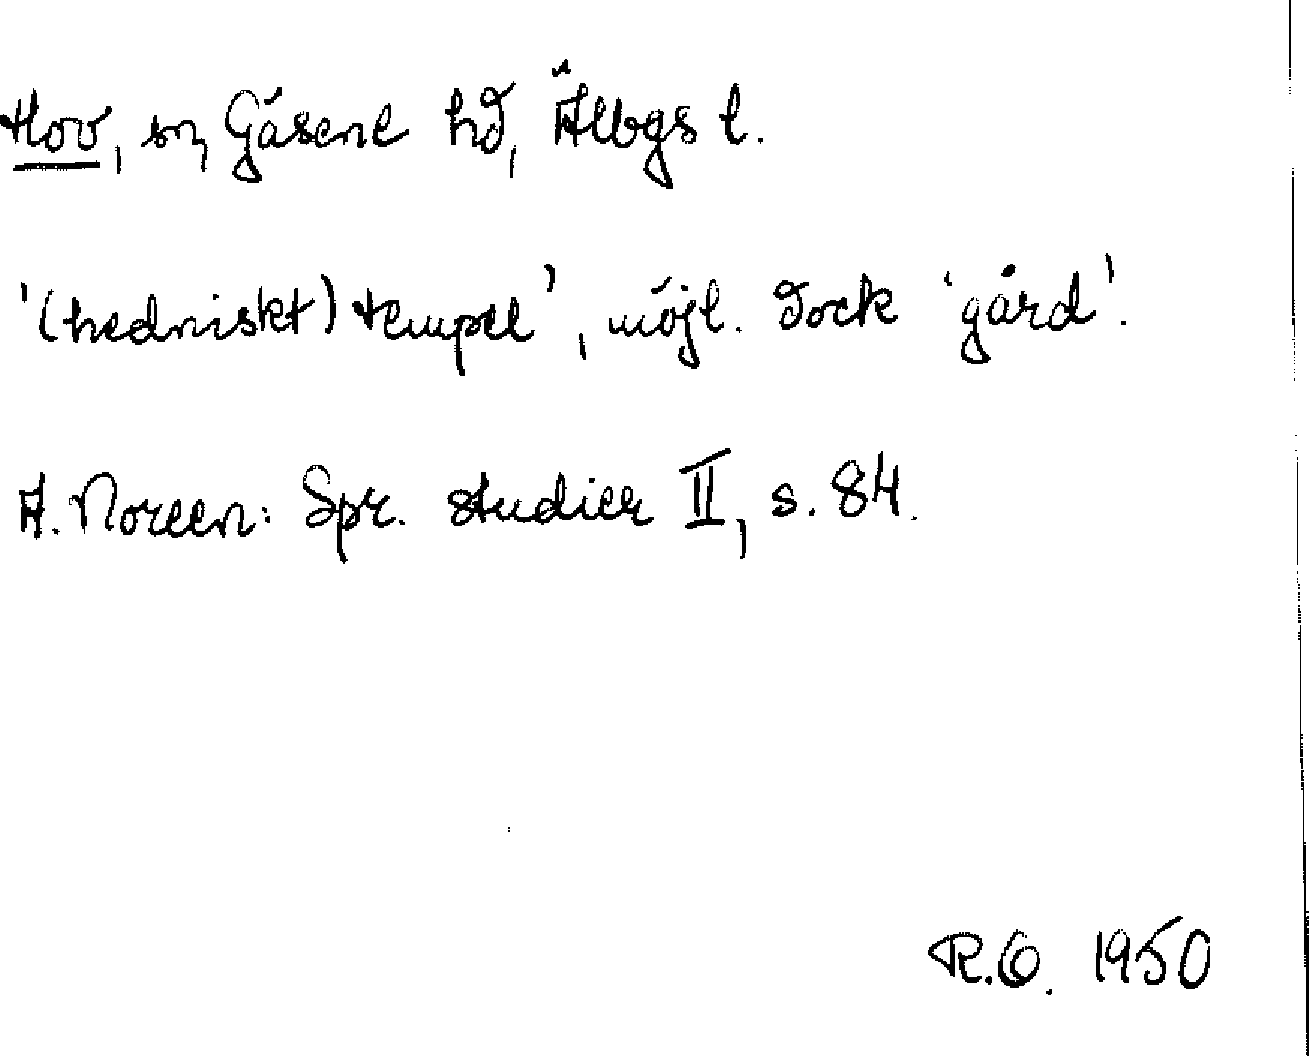 Hov, sn, Gäsene hd, Älvbgs l.
'(hedniskt) tempel', möjl. dock 'gård'.
A. Noreen: Spr. studier II, s. 84.
R.O. 1950